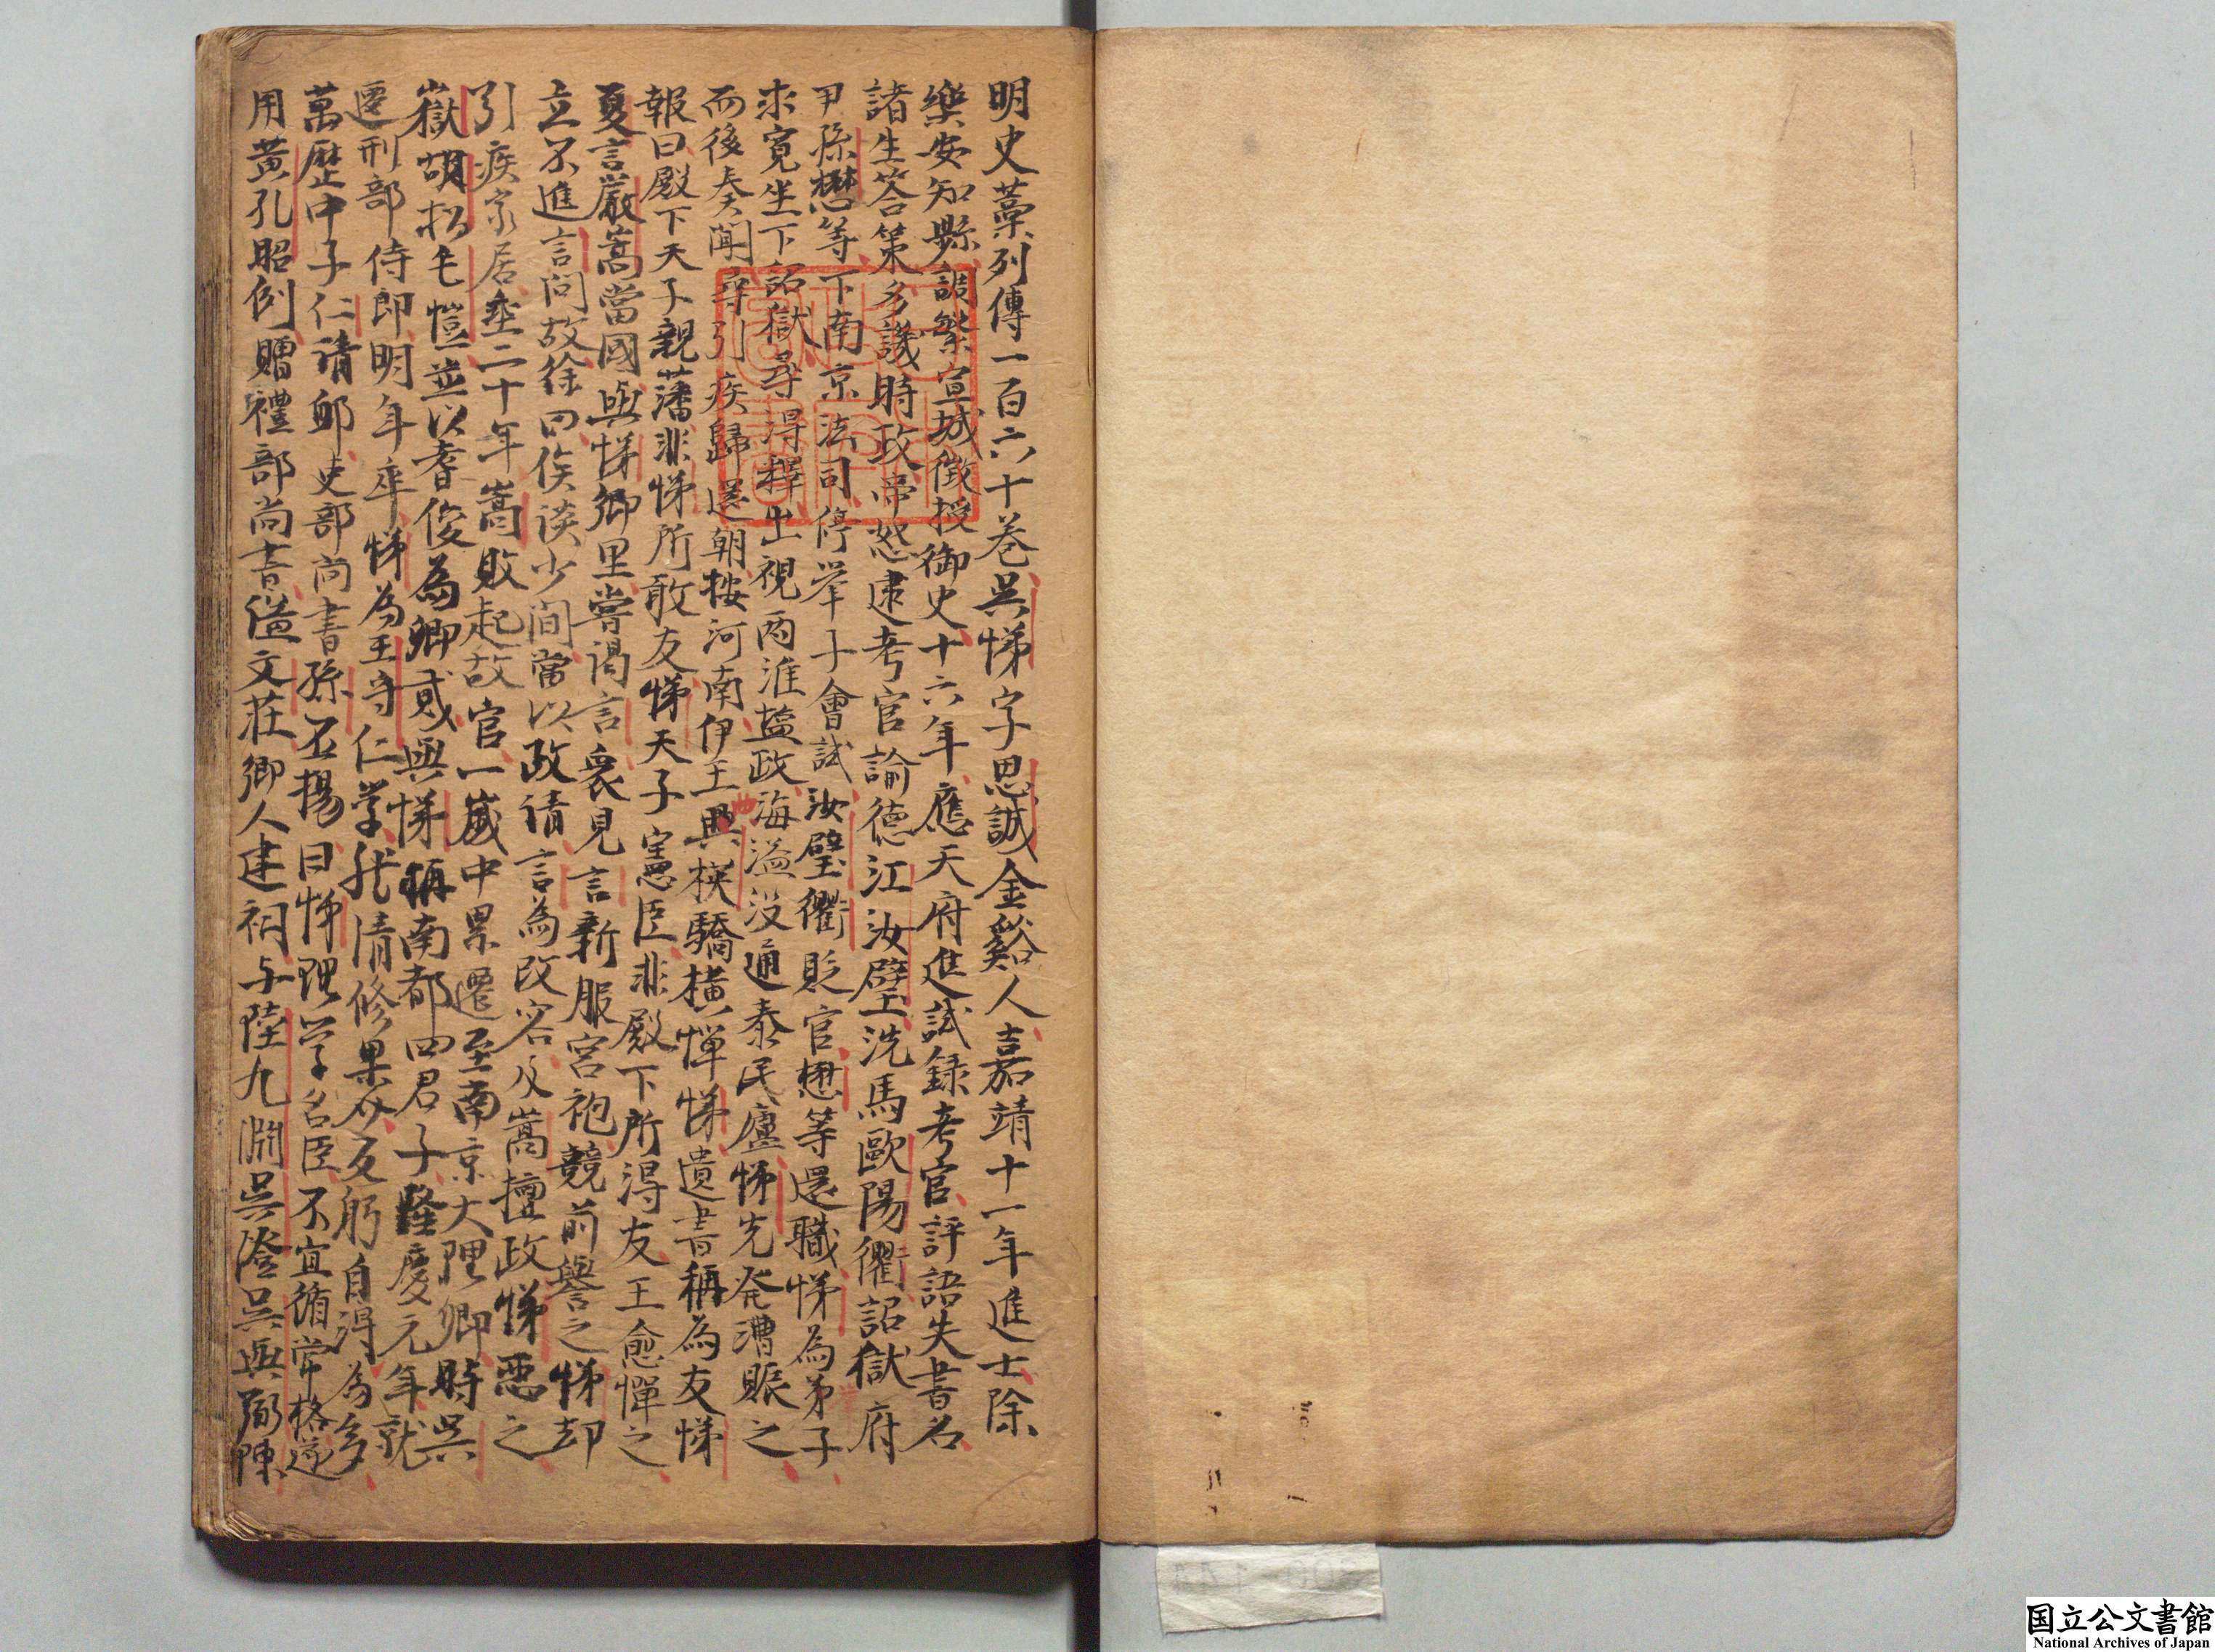 明史藁列傳一百六十巻呉悌字思誠金谿人嘉靖十一年進士除
樂安知縣調繁宣城徴授御史十六年應天府進試録考官評語失書名
諸生答策多譏時政帝怒逮考官諭德江汝璧洗馬歐陽衢詔獄府
尹孫懋等下南京法司停挙子會試汝璧衢貶官懋等還職悌為弟子
求寛坐下詔獄尋得釋出視两淮塩政海溢没通泰民廬悌先発漕賑之
而後奏聞尋引疾歸還朝按河南伊王典楧驕横憚悌遺書稱為友悌
報曰殿下天子親藩非悌所敢友悌天子憲臣非殿下所得友王愈憚之
夏言嚴嵩當國與悌郷里嘗謁言衆見言新服宮袍競前譽之悌却
立不進言問故徐曰俟談少間當以政请言為改容及嵩擅政悌惡之
引疾家居垂二十年嵩敗起故官一嵗中累遷至南京大理卿時呉
嶽胡松毛愷並以耆俊為卿貳與悌稱南都四君子隆慶元年就
遷刑部侍郎明年卒悌為王守仁学然清修果介反躬自得為多
萬歴中子仁请邺史部尚書孫丕揚曰悌理学名臣不宜循常格遂
用黄孔昭例贈禮部尚書謚文莊郷人建祠与陸九淵呉澄呉與弼陳
国立公文書館
National Archives of Japan